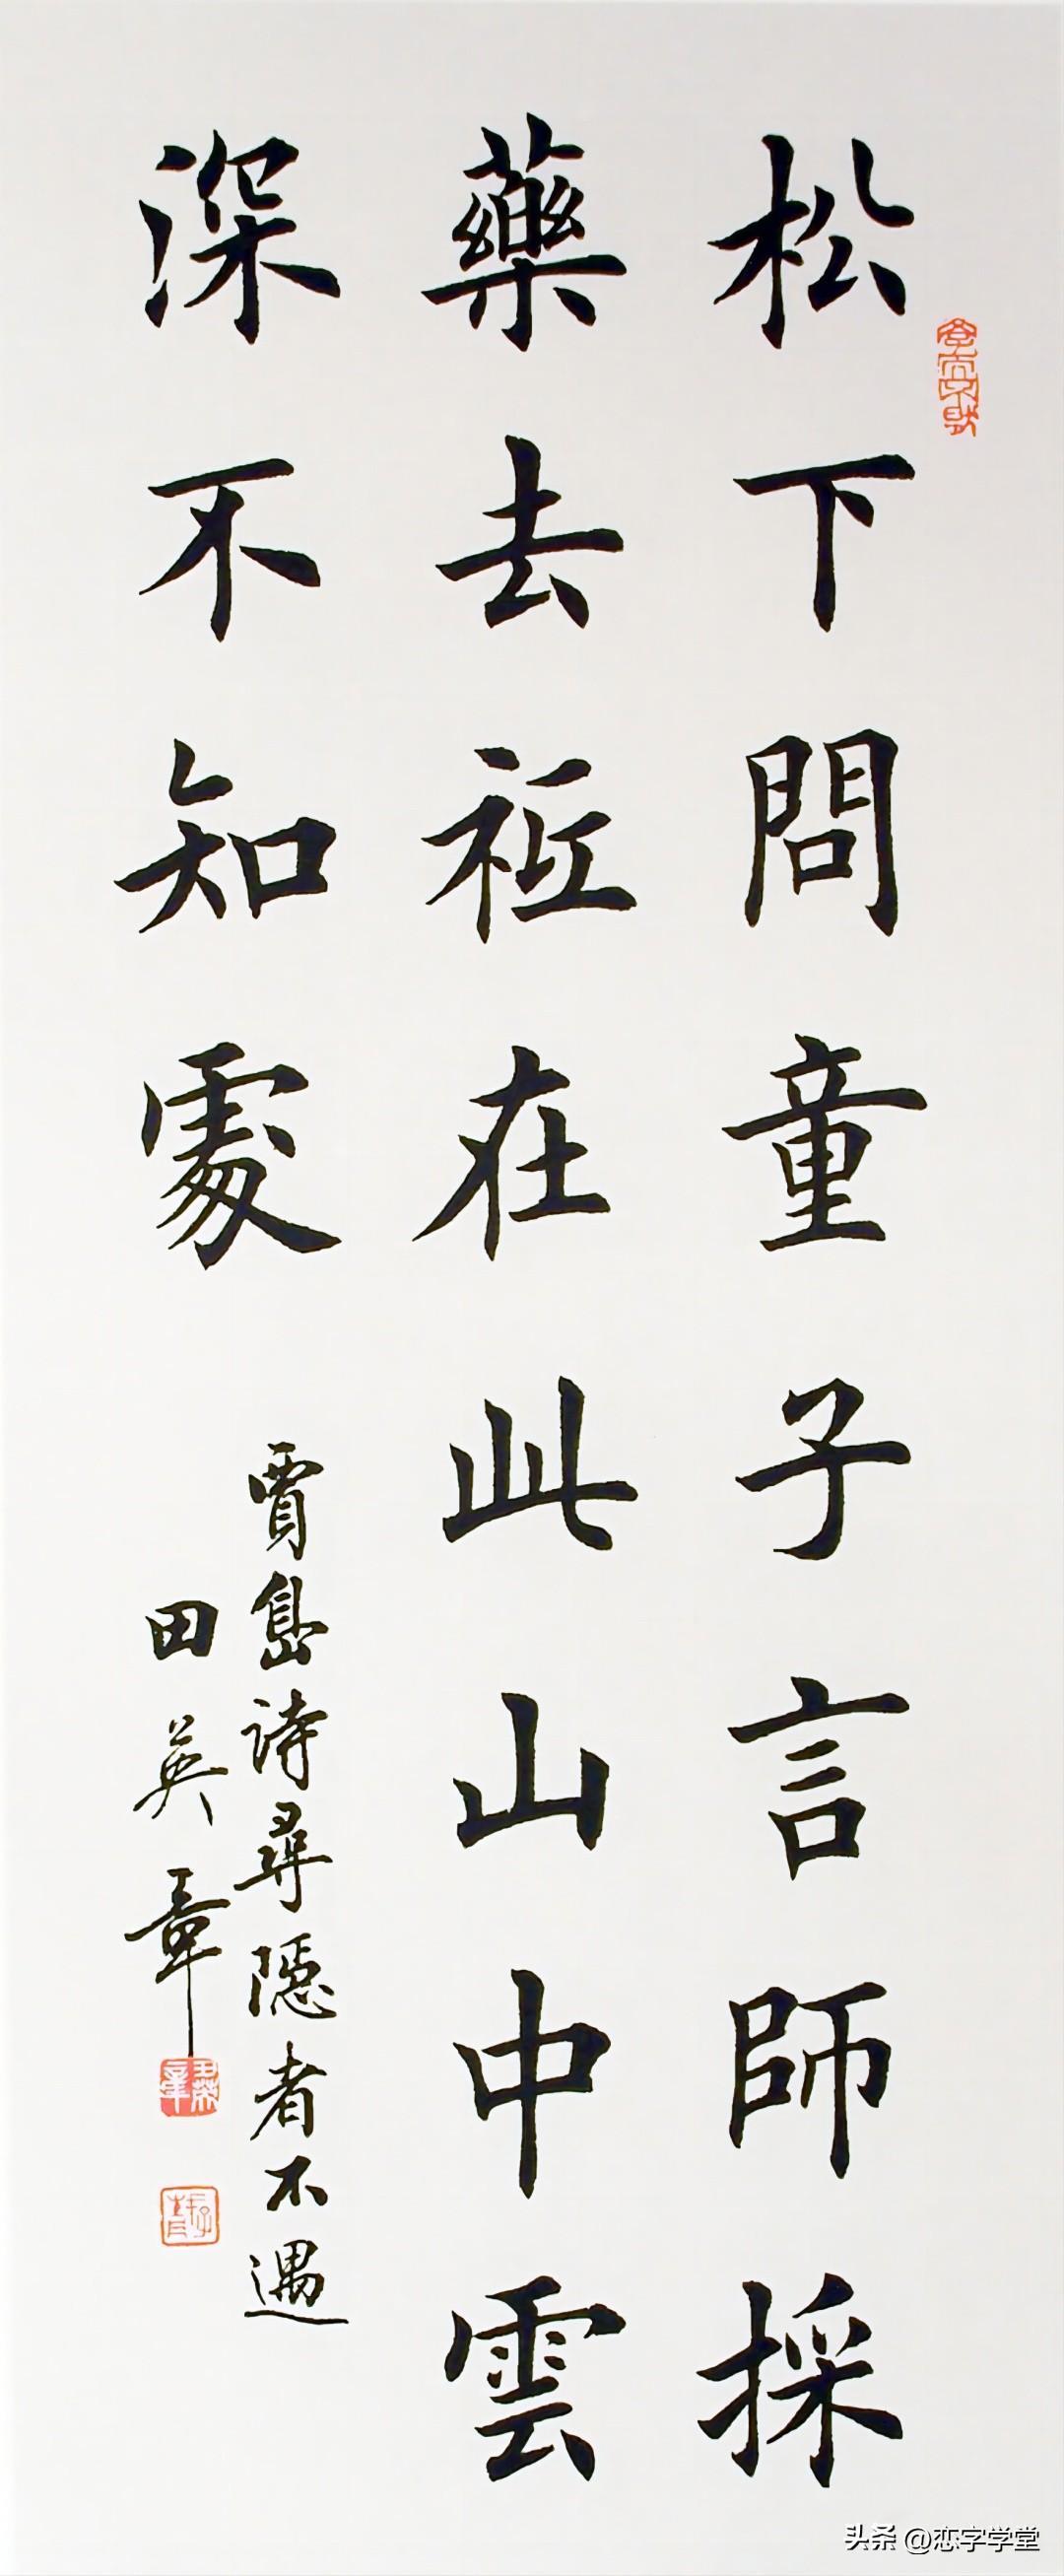 松下問童子言師採
藥去祗在此山中雲
深不知處
賈島詩尋隱者不遇
田英章
头条 @恋字学堂